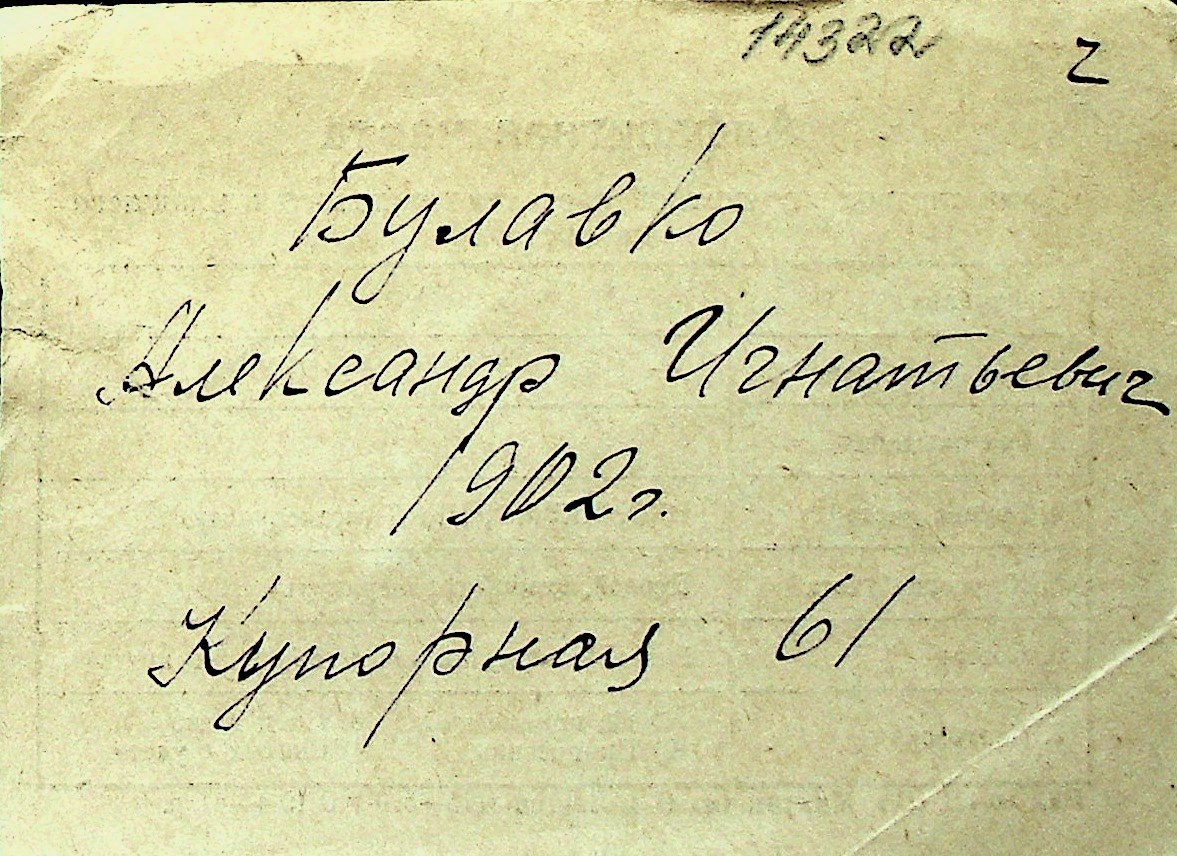 14322 ч
Булавко
Александр Игнатьевич
1902г.
Купорная 61